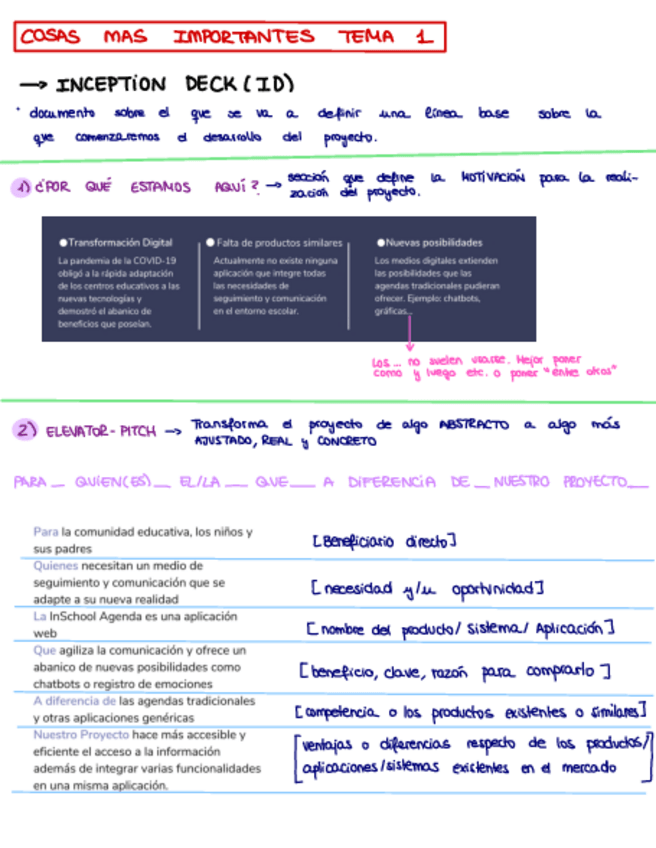 COSAS MAS IMPORTANTES TEMA 1
→ INCEPTION DECK (ID)
· documento sobre el que se va a definir una línea base sobre la
que comenzaremos el desarrollo del proyecto.
1) ¿POR QUÉ ESTAMOS AQUÍ? → sección que define la MOTIVACIÓN para la reali-
zación del proyecto.
●Transformación Digital
La pandemia de la COVID-19
obligó a la rápida adaptación
de los centros educativos a las
nuevas tecnologías y
demostró el abanico de
beneficios que poseían.
● Falta de productos similares
Actualmente no existe ninguna
aplicación que integre todas
las necesidades de
seguimiento y comunicación
en el entorno escolar.
●Nuevas posibilidades
Los medios digitales extienden
las posibilidades que las
agendas tradicionales pudieran
ofrecer. Ejemplo: chatbots,
gráficas...
Los ... no suelen usarse. Mejor poner
como y luego etc. o poner "entre otros"
2) ELEVATOR-PITCH → Transforma el proyecto de algo ABSTRACTO a algo más
AJUSTADO, REAL y CONCRETO
PARA __ QUIEN(ES) __ EL/LA __ QUE __ A DIFERENCIA DE __ NUESTRO PROYECTO __
Para la comunidad educativa, los niños y
sus padres
[Beneficiario directo]
Quienes necesitan un medio de
seguimiento y comunicación que se
adapte a su nueva realidad
[necesidad y/u oportunidad]
La InSchool Agenda es una aplicación
web
[nombre del producto/ Sistema/ Aplicación]
Que agiliza la comunicación y ofrece un
abanico de nuevas posibilidades como
chatbots o registro de emociones
[beneficio, clave, razón para comprarlo]
A diferencia de las agendas tradicionales
y otras aplicaciones genéricas
[competencia o los productos existentes o similares]
Nuestro Proyecto hace más accesible y
eficiente el acceso a la información
además de integrar varias funcionalidades
en una misma aplicación.
[ventajas o diferencias respecto de los productos/
aplicaciones/sistemas existentes en el mercado